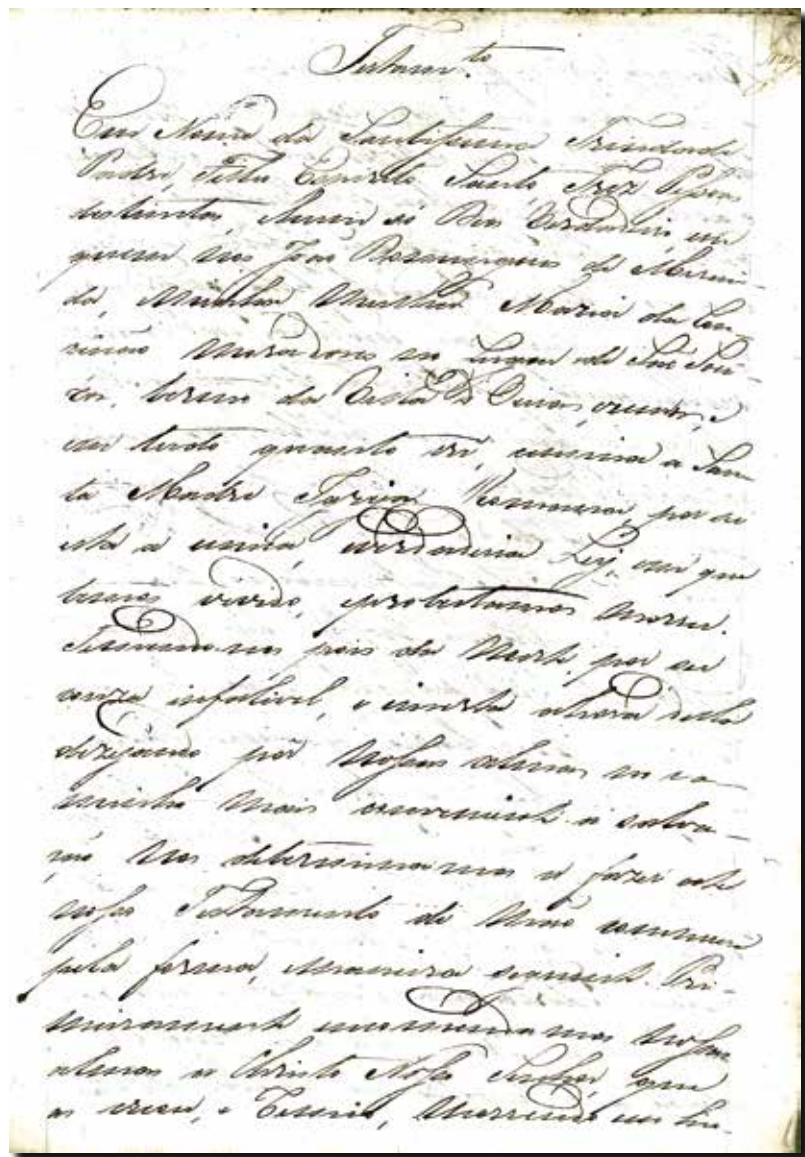 Testam.to
Em Nome da Santissima Trindade
Padre, Filho Espirito Santo, Trez Pessoas
destintas, hum só Deos Verdadeiro, em
quem nos João Domingues de Almeida
da, e minha Mulher Maria da Con-
ceição moradores no Lugar de São
termo da Villa de cremos, e
em tudo quanto crê, ensina a San-
ta Madre Igreja Romana, por ser
esta a unica, verdadeira Ley, em que
temos vivido, e protestamos morrer.
Temendo-nos pois da Morte, por ser
couza infalivel, e incerta a hora della
dezejando por nossas almas no ca-
minho mais conveniente a salva-
ção nos determinamos a fazer este
nosso Testamento de mão commum
pela forma, e maneira seguinte. Pri-
meiramente encomendamos nossas
almas a Christo Nosso Senhor, que
as creou, e Remio, morrendo em hu-